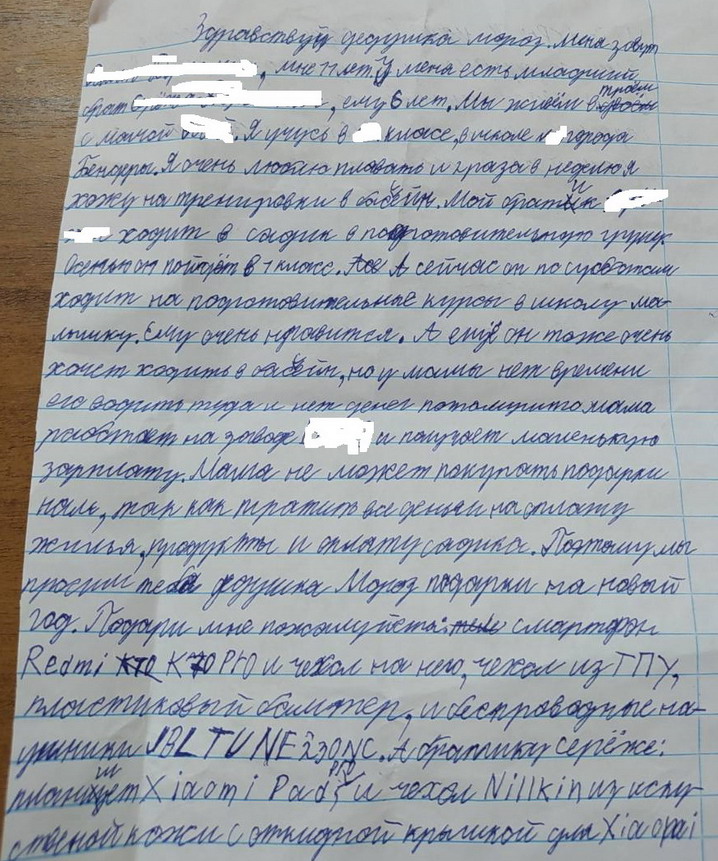 Здравствуй дедушка мороз. Меня зовут
, мне 11 лет У меня есть младший
брат , ему 6 лет. Мы живём втроём
с мамой . Я учусь в класс, в школе города
Бендеры. Я очень люблю плавать и 2 раза в неделю я
хожу на тренировки в басейн. Мой братик
ходит в садик в подготовительную группу.
Осенью он пойдёт в 1 класс. А сейчас он по субботам
ходит на подготовительные курсы в школу ма-
лышку. Ему очень нравится. А ещё он тоже очень
хочет ходить в басейн, но у мамы нет времени
его водить туда и нет денег потомушто мама
работает на заводе и получает маленькую
зарплату. Мама не может покупать подарки
нам, так как тратит все деньги на оплату
жилья, продукты и оплату садика. Поэтому мы
просим тебя дедушка Мороз подарки на новый
год. Подари мне пожалуйста: смартфон
Redmi K70 Pro и чехол на него, чехол из ТПУ,
пластиковый бампер, и беспроводные на-
ушники JBL TUNE 230NC. А братику серёже:
планшет Xiaomi Pad и чехол Nillkin из иску-
ственой кожи с откидной крышкой для Xiaomi